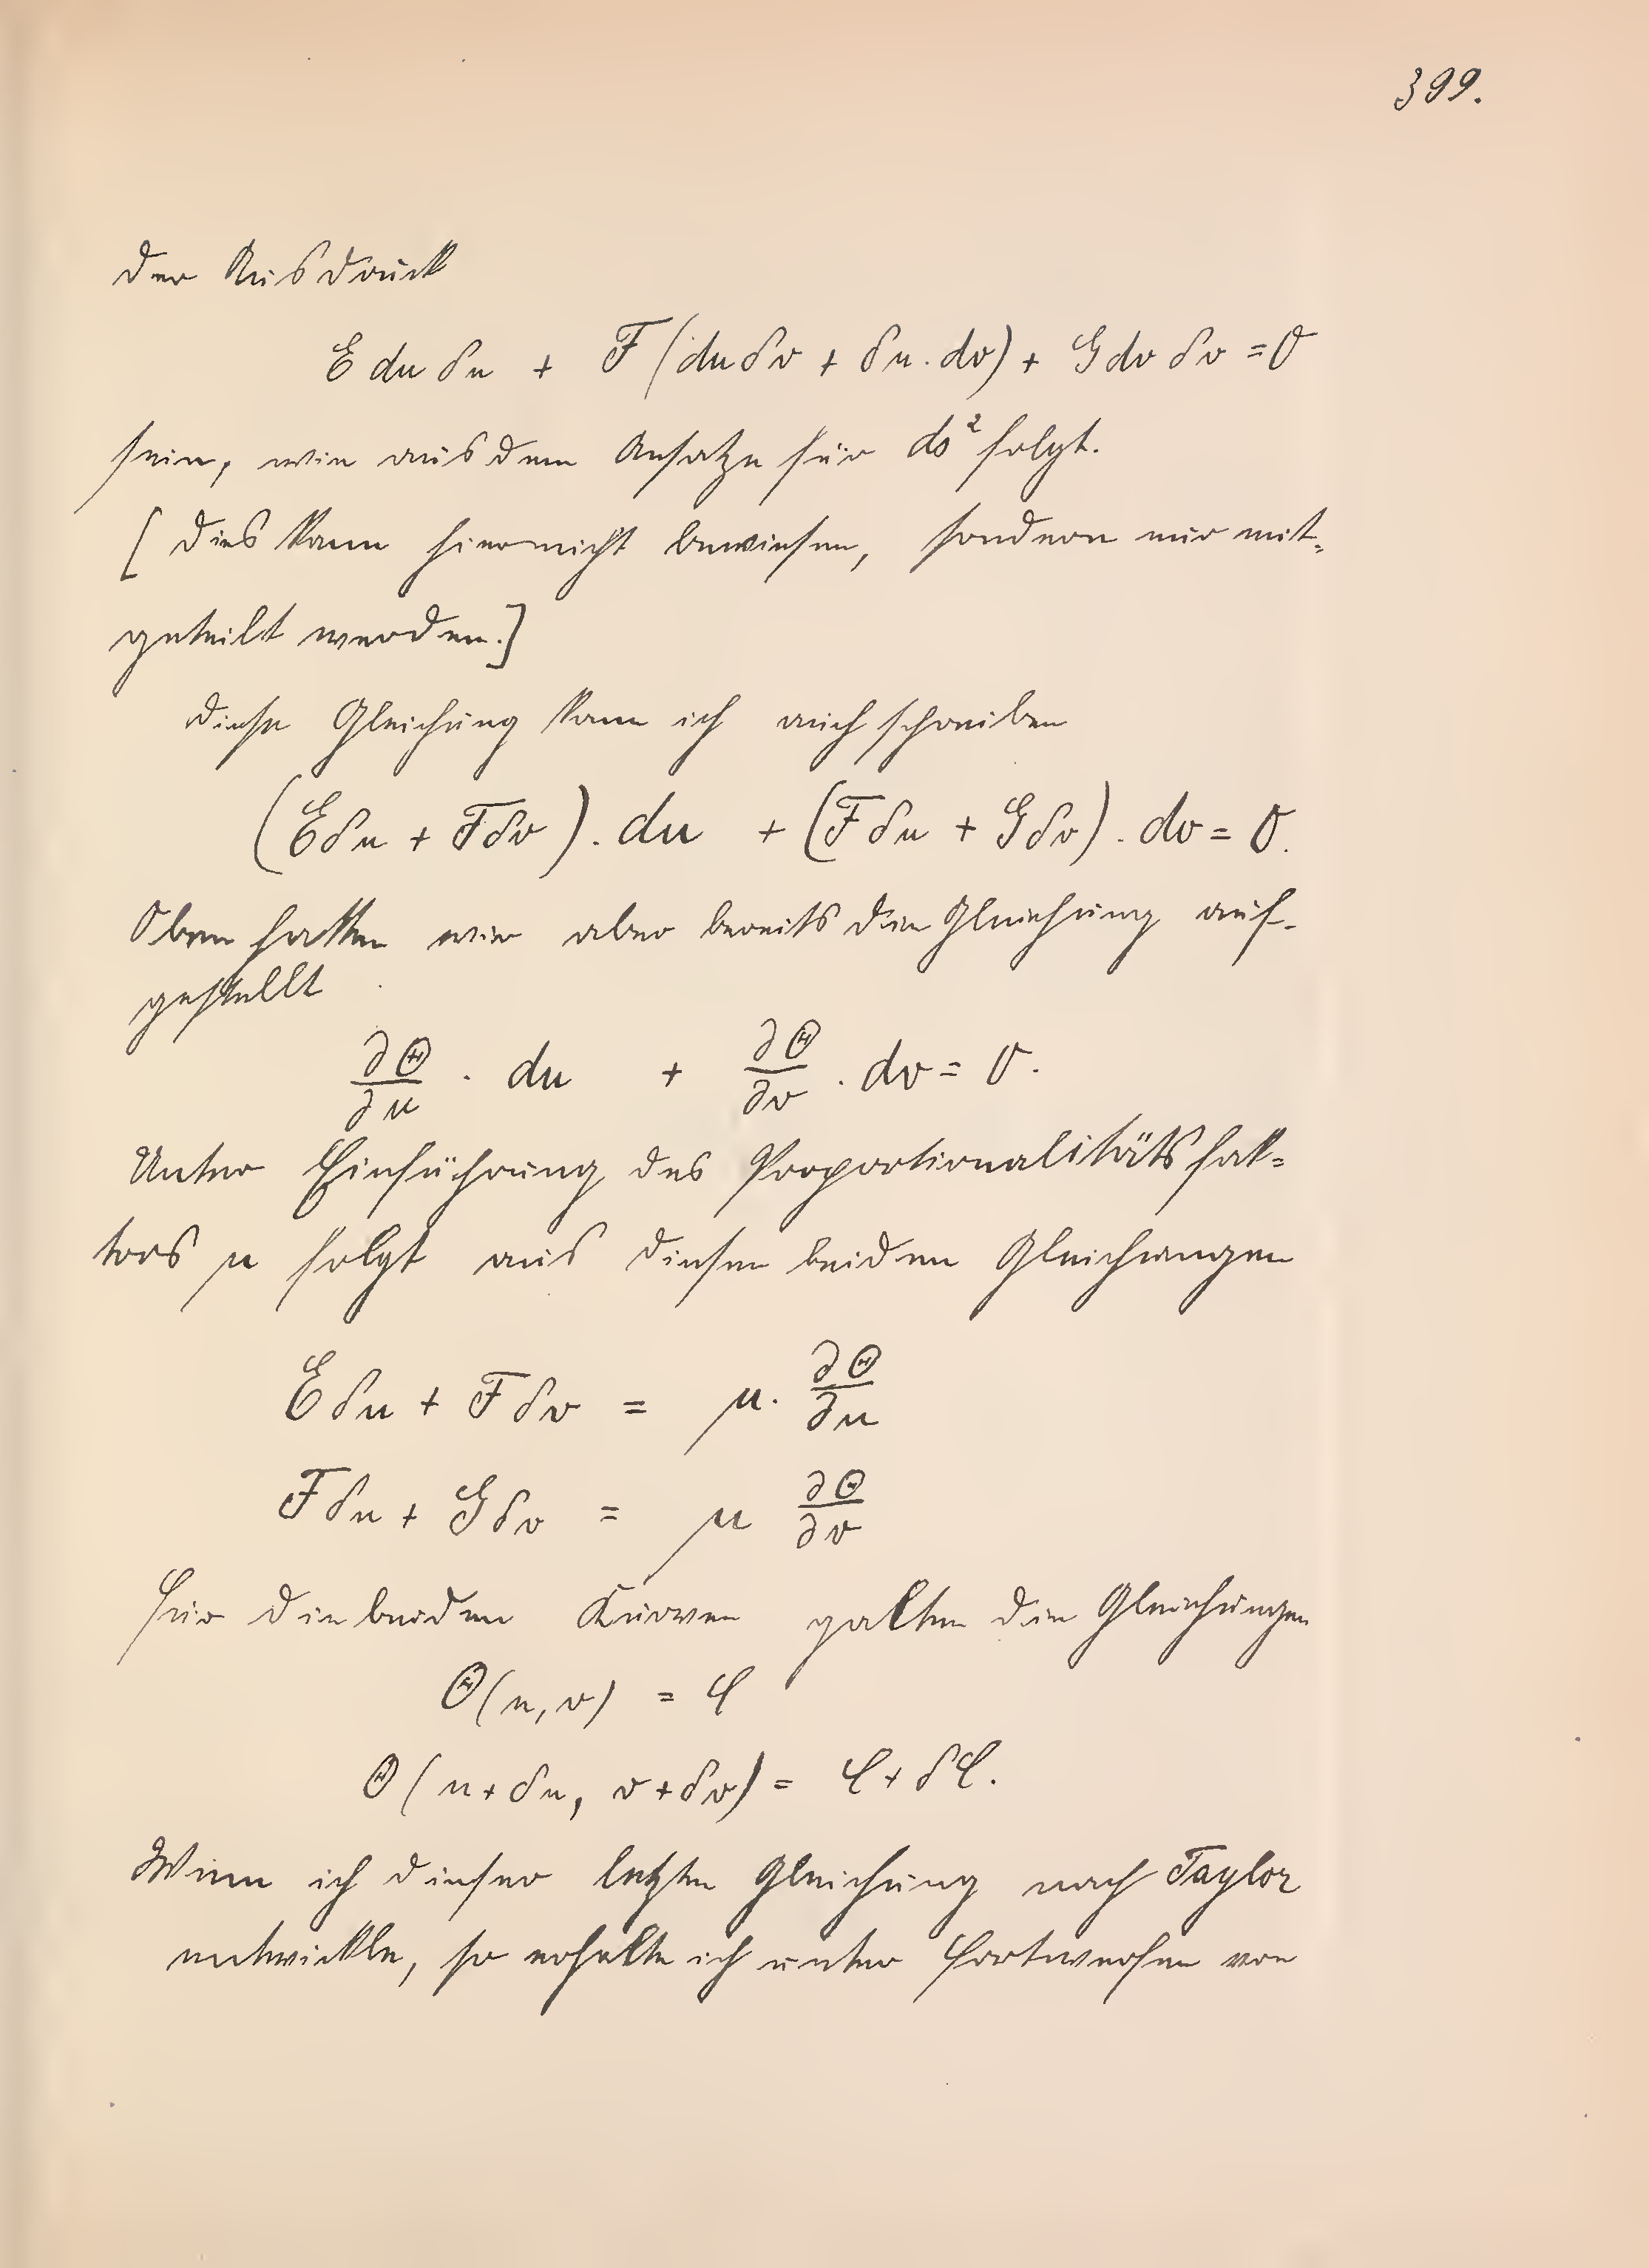 399.
der Ausdruck
E du δu + F (du δv + δu . dv) + G dv δv = 0
sein, wie aus dem Ansatze für ds² folgt.
[ Dies kann hier nicht bewiesen, sondern nur mit-
geteilt werden.]
Diese Gleichung kann ich auch schreiben
(E δu + F δv) . du + (F δu + G δv) . dv = 0.
Oben hatten wir aber bereits die Gleichung auf-
gestellt
∂Θ/∂u . du + ∂Θ/∂v . dv = 0.
Unter Einführung des Proportionalitätsfak-
tors μ folgt aus diesen beiden Gleichungen
E δu + F δv = μ . ∂Θ/∂u
F δu + G δv = μ ∂Θ/∂v
Für die beiden Kurven galten die Gleichungen
Θ(u, v) = φ
Θ(u + δu, v + δv) = φ + δφ.
Wenn ich dieser letzten Gleichung nach Taylor
entwickle, so erhalte ich unter Fortwerfen von